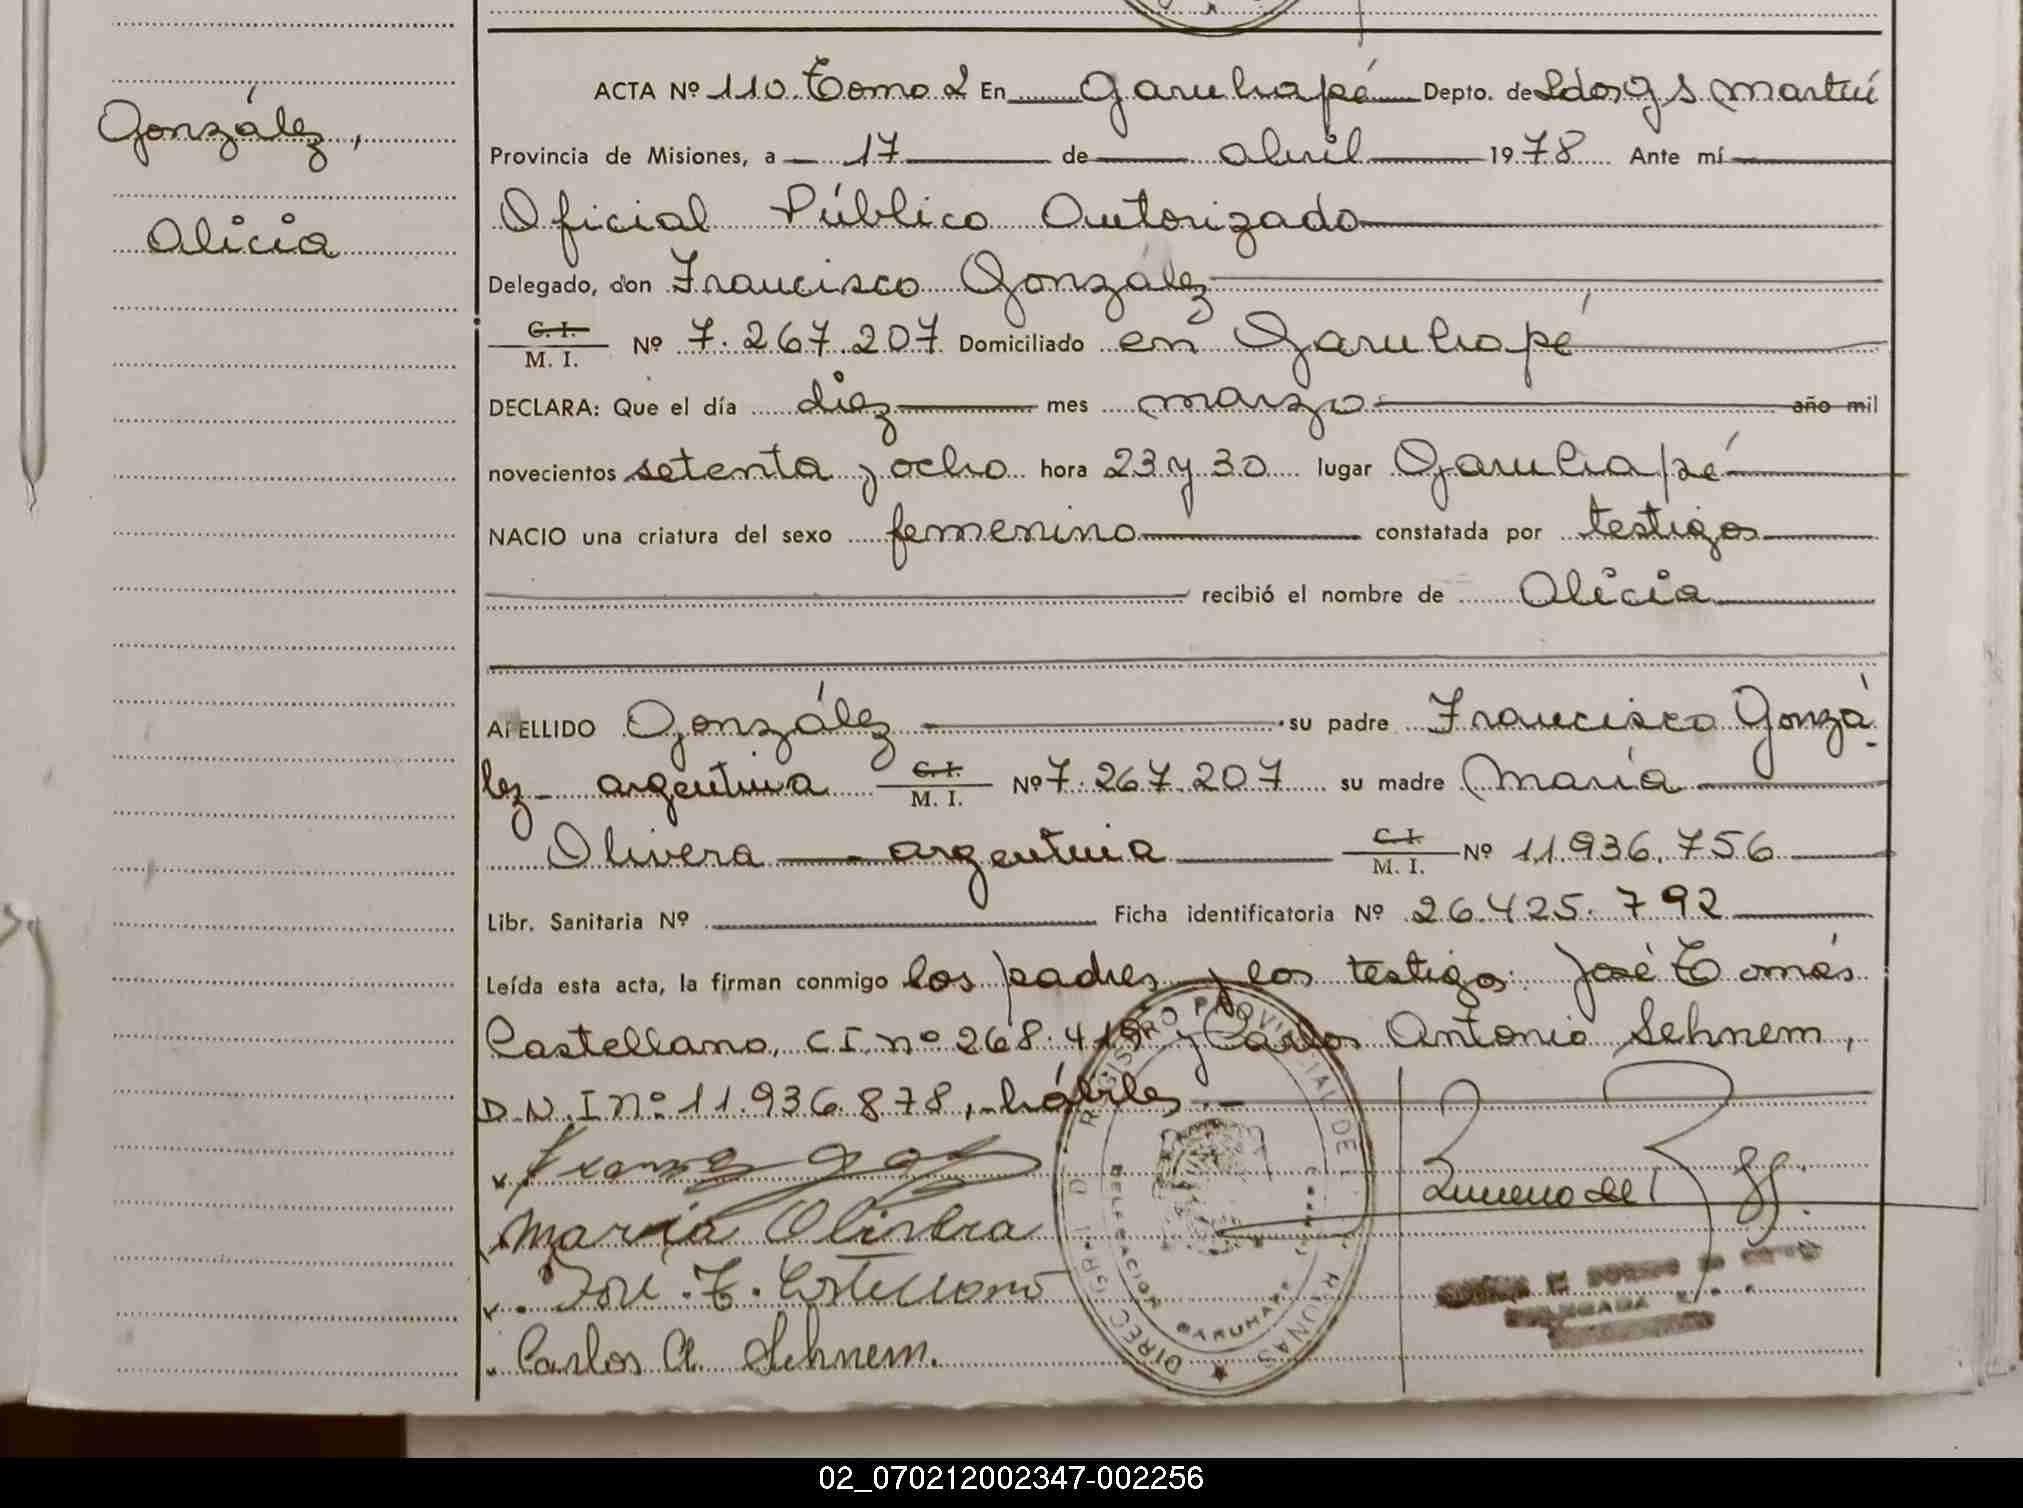 González,
Alicia
ACTA Nº 110 Tomo 2 En Garuhapé Depto. de Ldor G S Martín
Provincia de Misiones, a 17 de abril 1978 Ante mí
Oficial Público Autorizado
Delegado, don Francisco González
C. I. / M. I. Nº 7.267.207 Domiciliado en Garuhapé
DECLARA: Que el día diez mes marzo año mil
novecientos setenta y ocho hora 23 y 30 lugar Garuhapé
NACIO una criatura del sexo femenino constatada por testigos
recibió el nombre de Alicia
APELLIDO González su padre Francisco Gonzá
lez - argentina C. I. / M. I. Nº 7.267.207 su madre María
Olivera argentina C. I. / M. I. Nº 11.936.756
Libr. Sanitaria Nº Ficha identificatoria Nº 26.425.792
Leída esta acta, la firman conmigo los padres y los testigos: José Tomás
Castellano, C I nº 268.419 y Carlos Antonio Sehnem,
D.N.I nº 11.936.878, hábiles.-
María Olivera
José T. Castellano
Carlos A. Sehnem.
DIREC. GRAL. DEL REGISTRO PROVINCIAL DE LAS PERSONAS
DELEGACION GARUHAPE
02_070212002347-002256